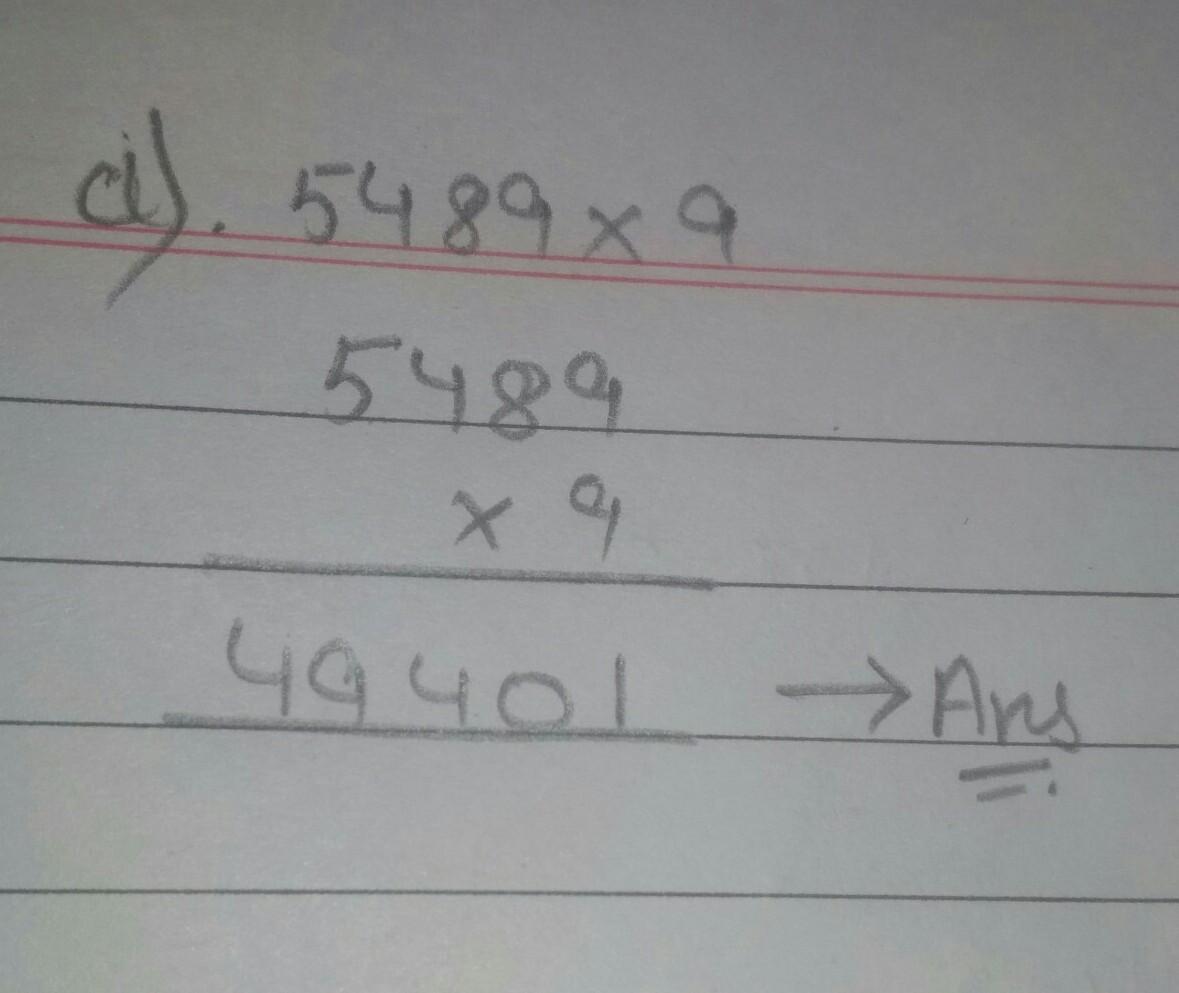 d). 5489 × 9
5489
× 9
49401 → Ans